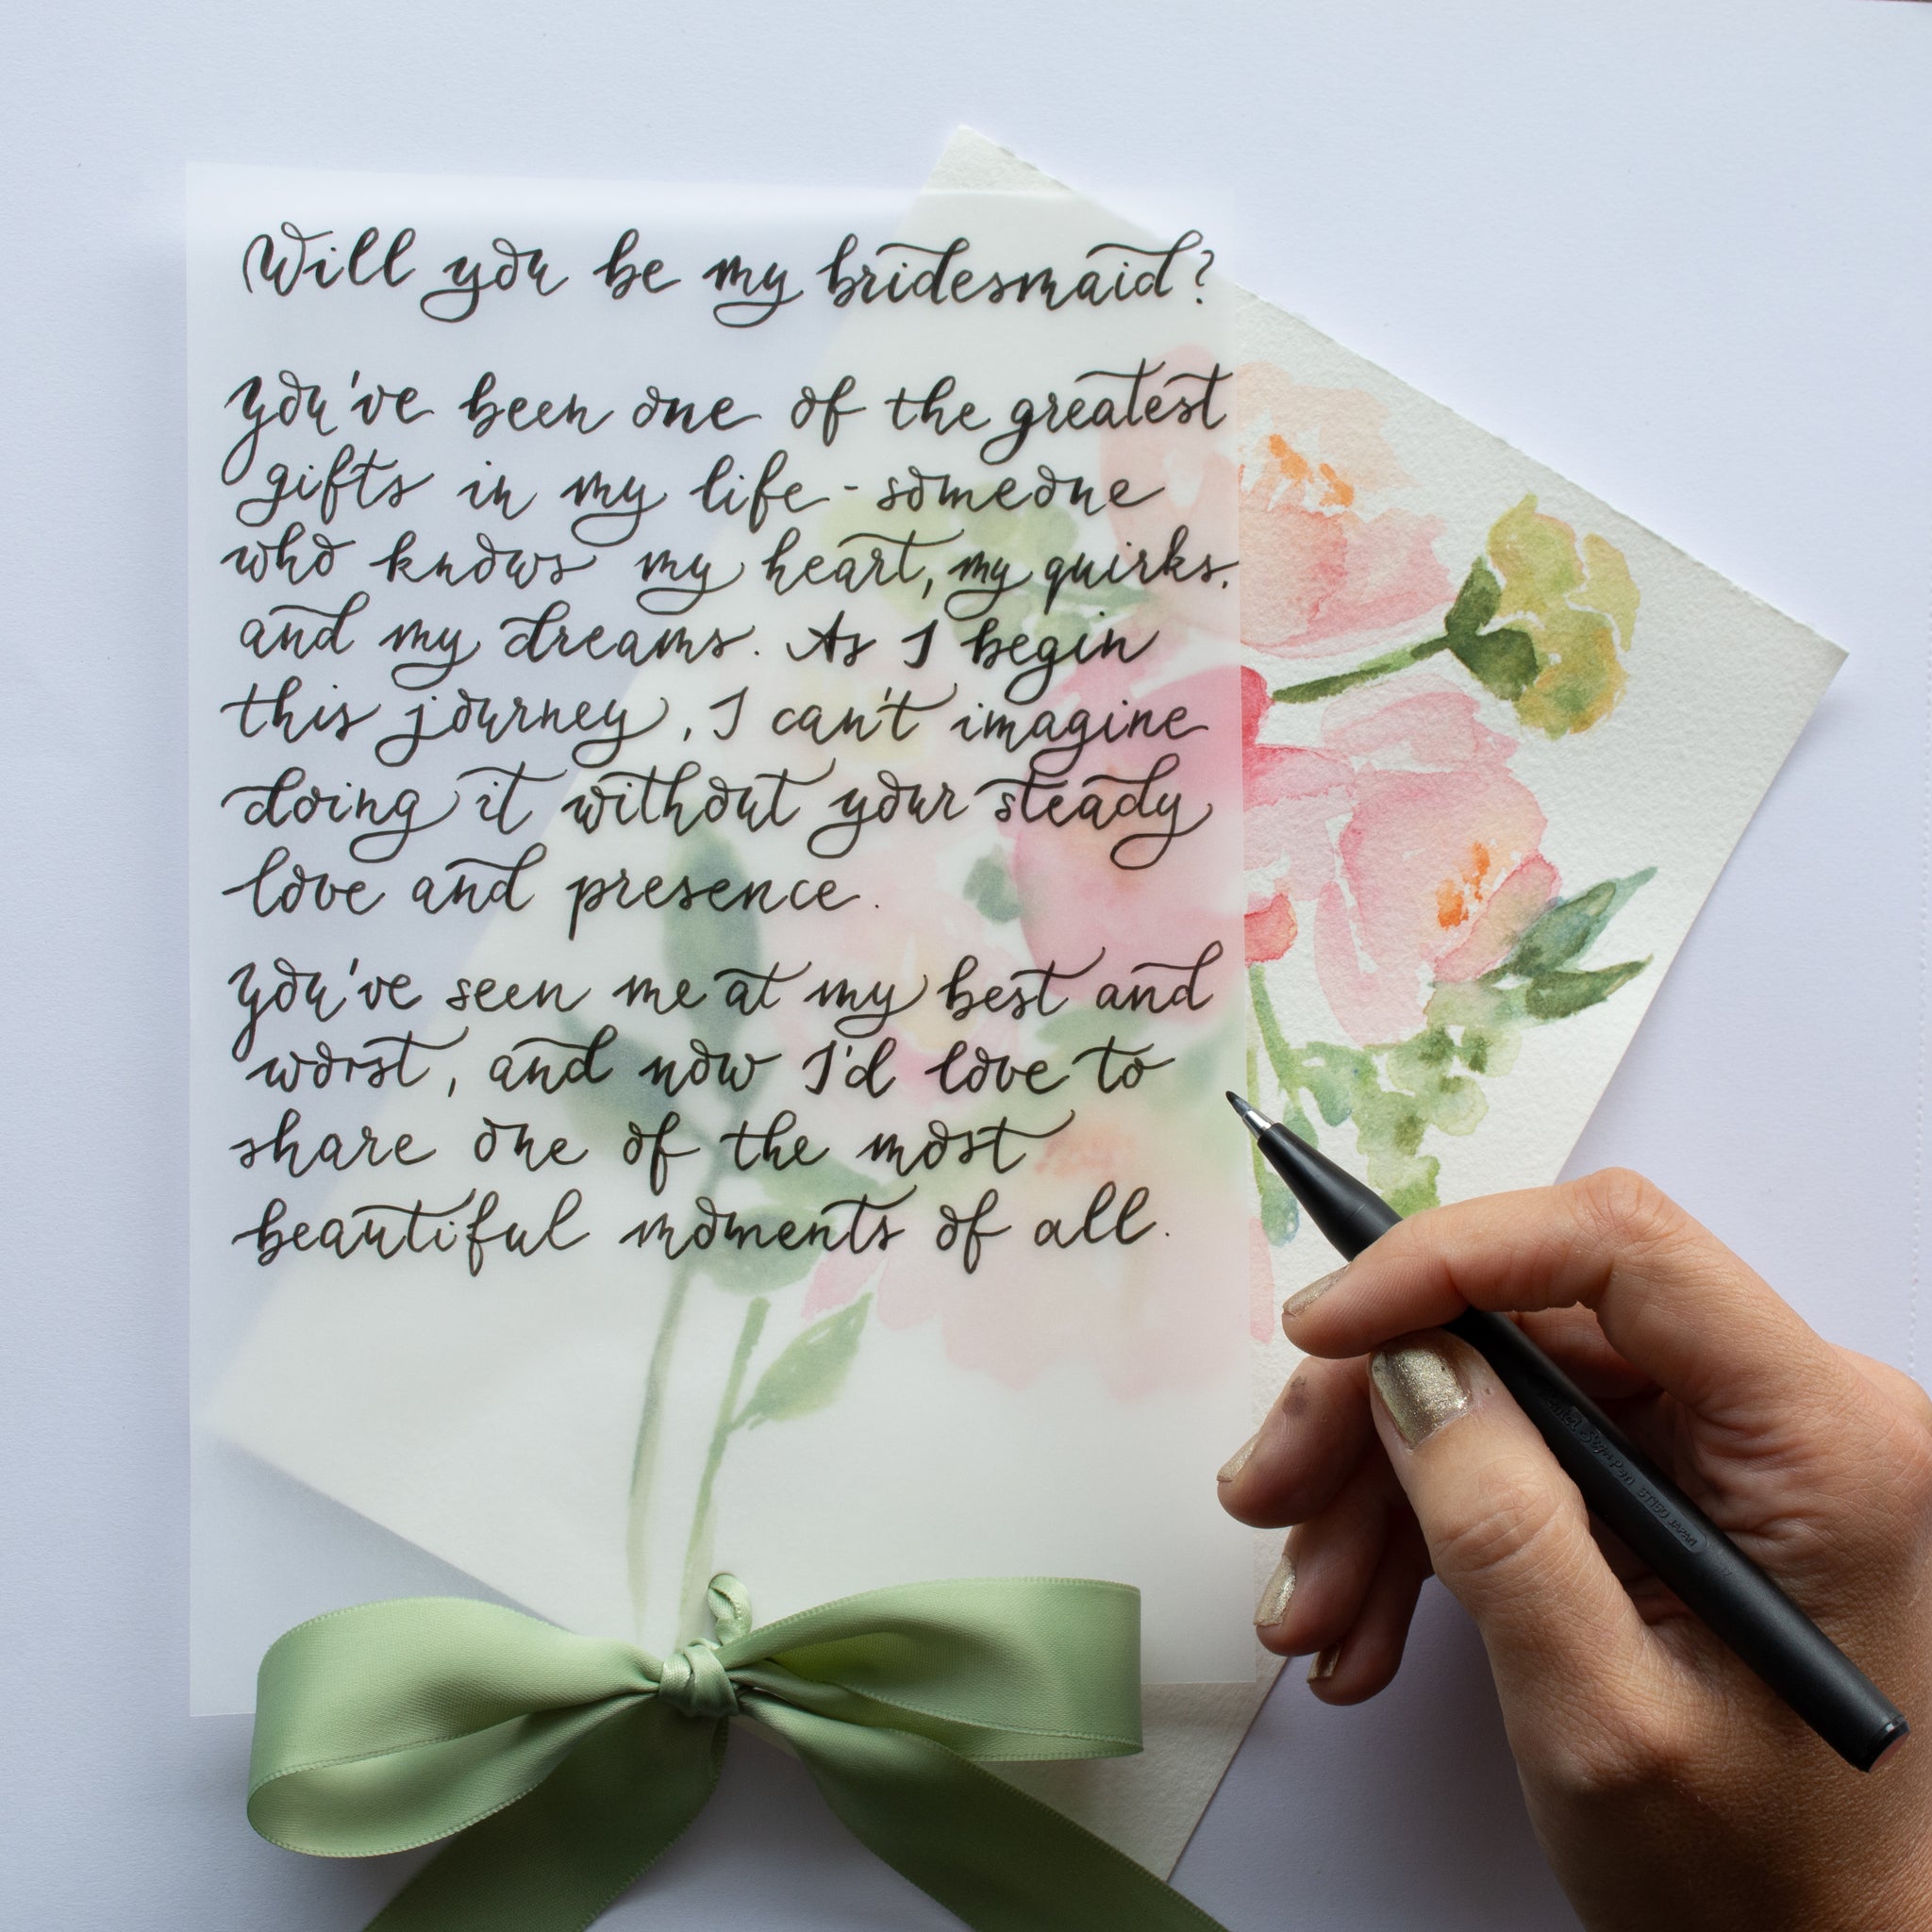 Will you be my bridesmaid?
You've been one of the greatest
gifts in my life - someone
who knows my heart, my quirks,
and my dreams. As I begin
this journey, I can't imagine
doing it without your steady
love and presence.
You've seen me at my best and
worst, and now I'd love to
share one of the most
beautiful moments of all.
Sign Pen ST150 JAPAN